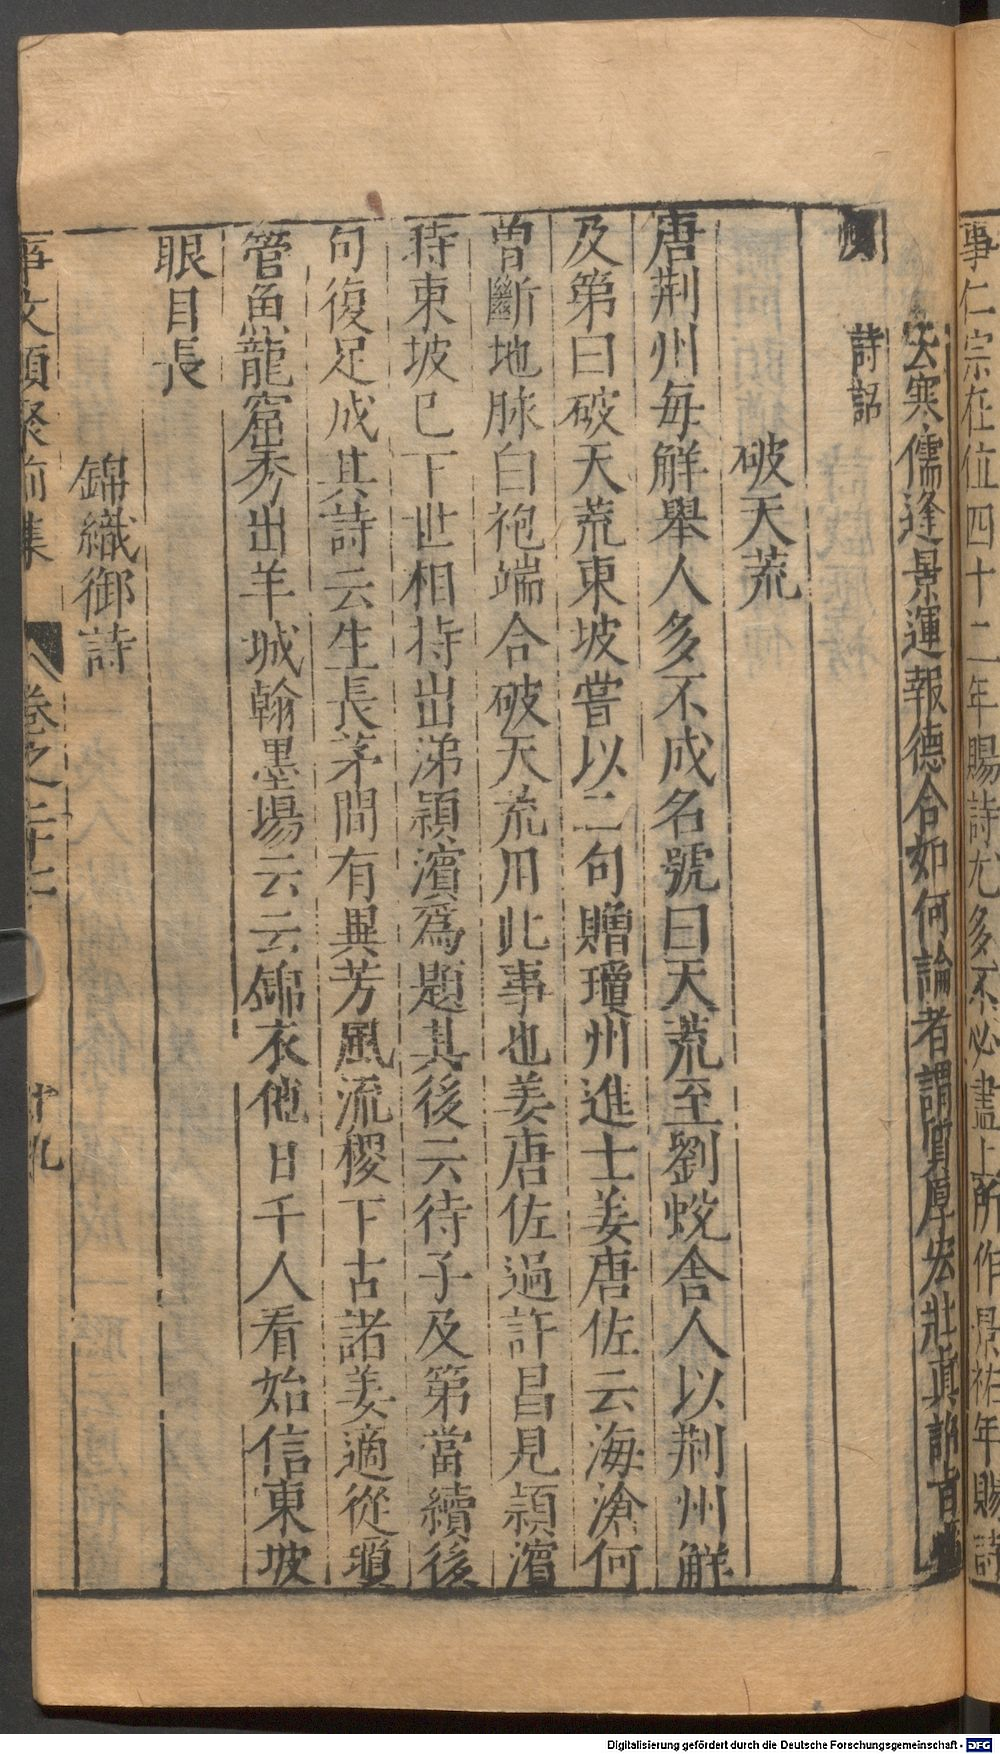 事仁宗在位四十二年賜詩尤多不必盡上所作景祐年賜詩
云寒儒逢景運報德合如何論者謂質厚宏壯真詔旨
詩話
破天荒
唐荆州每解舉人多不成名號曰天荒至劉蛻舍人以荆州解
及第曰破天荒東坡嘗以二句贈瓊州進士姜唐佐云海滄何
曾斷地脉白袍端合破天荒用此事也姜唐佐過許昌見潁濱
時東坡已下世相持出涕潁濱為題其後云待子及第當續後
句復足成其詩云生長茅間有異芳風流稷下古諸姜適從瓊
管魚龍窟秀出羊城翰墨場云云錦衣他日千人看始信東坡
眼目長
錦織御詩
事文類聚前集 卷之二十七 廿九
Digitalisierung gefördert durch die Deutsche Forschungsgemeinschaft - DFG